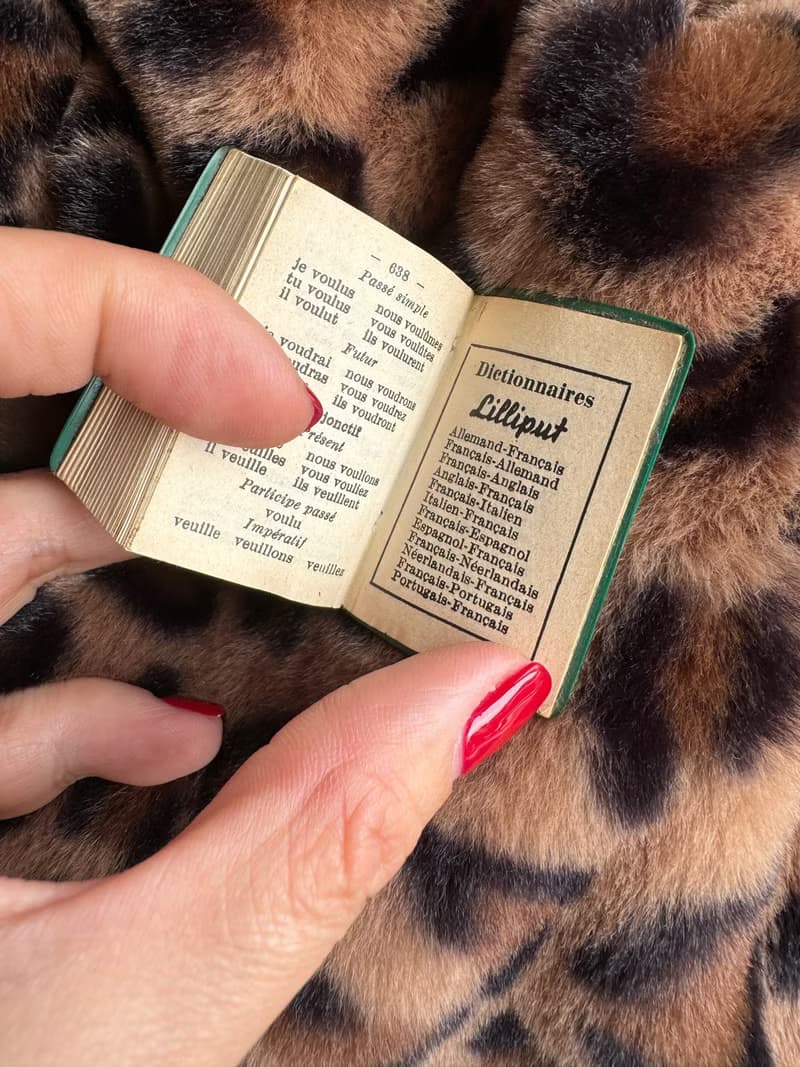 — 638 —
Passé simple
je voulus nous voulûmes
tu voulus vous voulûtes
il voulut ils voulurent
Futur
voudrai nous voudrons
vous voudrez
ils voudront
nous voulions
vous vouliez
il veuille ils veuillent
Participe passé
voulu
Impératif
veuille veuillons veuillez
Dictionnaires
Lilliput
Allemand-Français
Français-Allemand
Français-Anglais
Anglais-Français
Français-Italien
Italien-Français
Français-Espagnol
Espagnol-Français
Français-Néerlandais
Néerlandais-Français
Français-Portugais
Portugais-Français